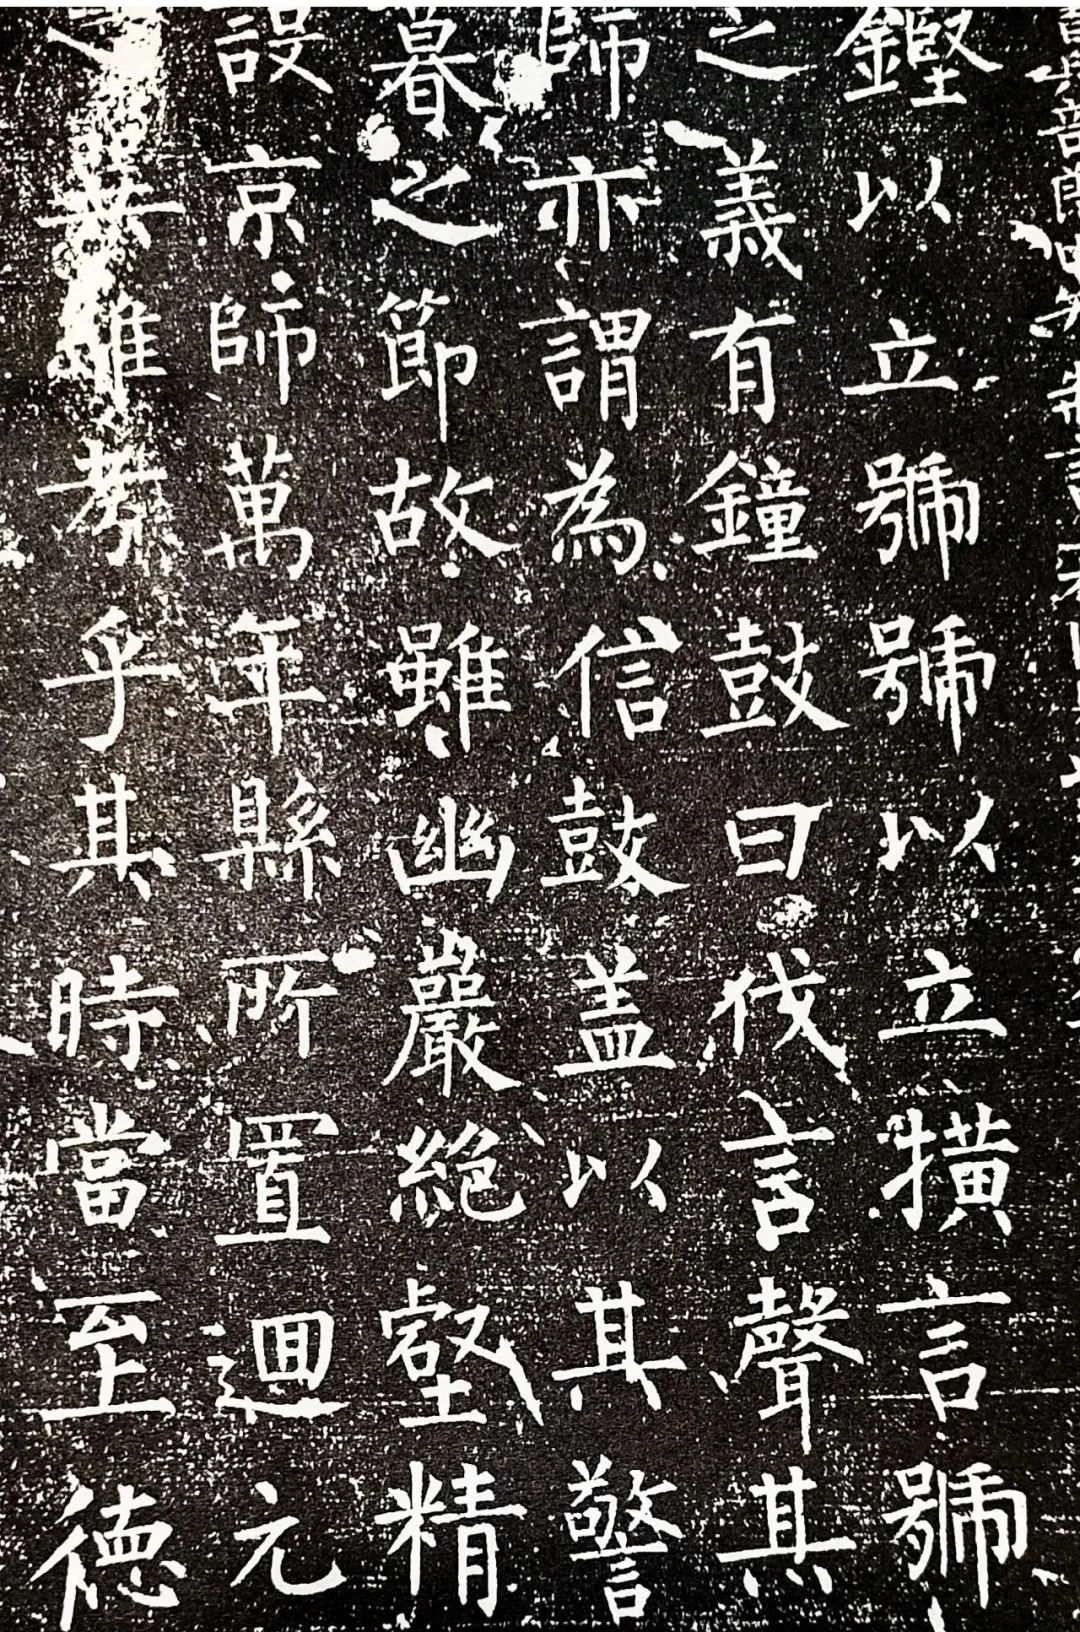 部郎中知制誥
鏗以立號號以立撗言號
之義有鐘鼓曰伐言聲其
師亦謂為信鼓盖以其警
暮之節故雖幽巖絕壑精
設京師萬年縣所置迴元
誰考乎其時當至德